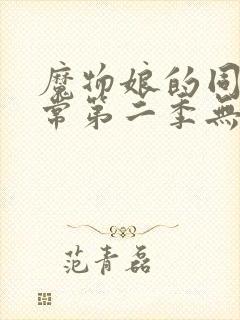 魔物娘的同
常第二季無
范青磊